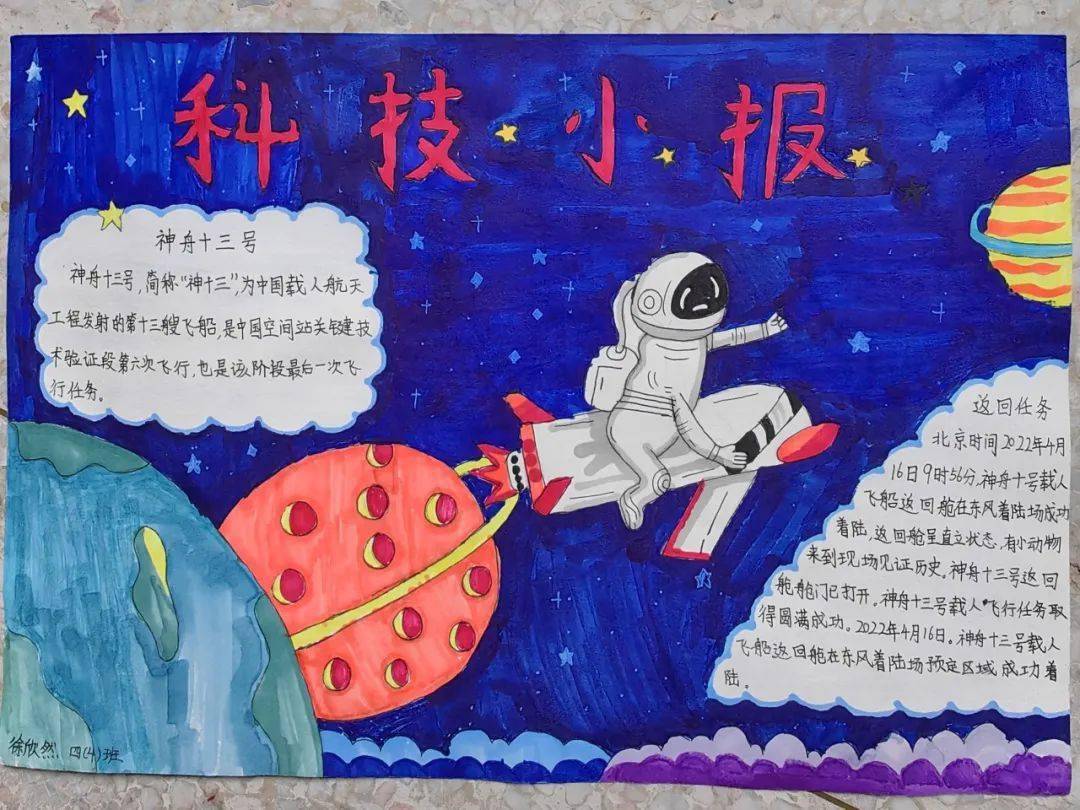 科技小报
神舟十三号
神舟十三号,简称“神十三”,为中国载人航天
工程发射的第十三艘飞船,是中国空间站关键技
术验证段第六次飞行,也是该阶段最后一次飞
行任务。
返回任务
北京时间2022年4月
16日9时56分,神舟十号载人
飞船返回舱在东风着陆场成功
着陆,返回舱呈直立状态,有小动物
来到现场见证历史。神舟十三号返回
舱舱门已打开。神舟十三号载人飞行任务取
得圆满成功。2022年4月16日。神舟十三号载人
飞船返回舱在东风着陆场预定区域成功着
陆。
徐欣然 四(4)班